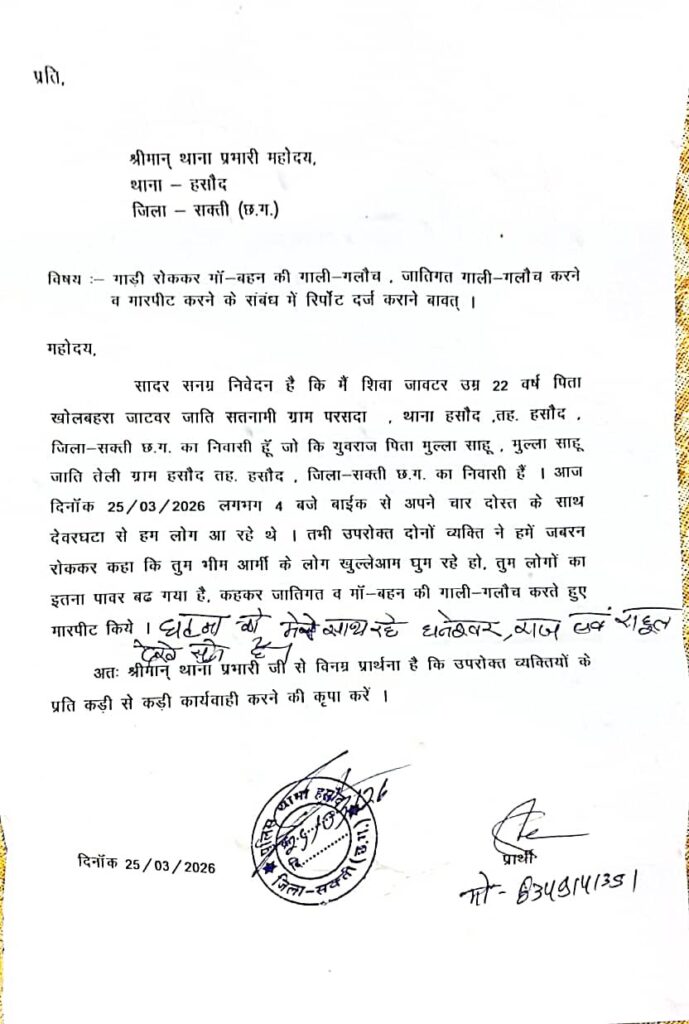 प्रति,
श्रीमान् थाना प्रभारी महोदय,
थाना – हसौद
जिला – सक्ती (छ.ग.)
विषय :– गाड़ी रोककर मॉ–बहन की गाली–गलौच , जातिगत गाली–गलौच करने
व मारपीट करने के संबंध में रिर्पोट दर्ज कराने बावत् ।
महोदय,
सादर सनम्र निवेदन है कि मैं शिवा जावटर उम्र 22 वर्ष पिता
खोलबहरा जाटवर जाति सतनामी ग्राम परसदा , थाना हसौद ,तह. हसौद ,
जिला–सक्ती छ.ग. का निवासी हूँ जो कि युवराज पिता मुल्ला साहू , मुल्ला साहू
जाति तेली ग्राम हसौद तह. हसौद , जिला–सक्ती छ.ग. का निवासी हैं । आज
दिनॉक 25/03/2026 लगभग 4 बजे बाईक से अपने चार दोस्त के साथ
देवरघटा से हम लोग आ रहे थे । तभी उपरोक्त दोनों व्यक्ति ने हमें जबरन
रोककर कहा कि तुम भीम आर्मी के लोग खुल्लेआम घुम रहे हो, तुम लोगों का
इतना पावर बढ गया है, कहकर जातिगत व मॉ–बहन की गाली–गलौच करते हुए
मारपीट किये । घटना को मेरे साथ रहे धनेश्वर, राज एवं राहूल
देखे सुने है।
अतः श्रीमान् थाना प्रभारी जी से विनम्र प्रार्थना है कि उपरोक्त व्यक्तियों के
प्रति कड़ी से कड़ी कार्यवाही करने की कृपा करें ।
पुलिस थाना हसौद
दि.
जिला–सक्ती (छ.ग.)
दिनॉक 25/03/2026
प्रार्थी
मो-